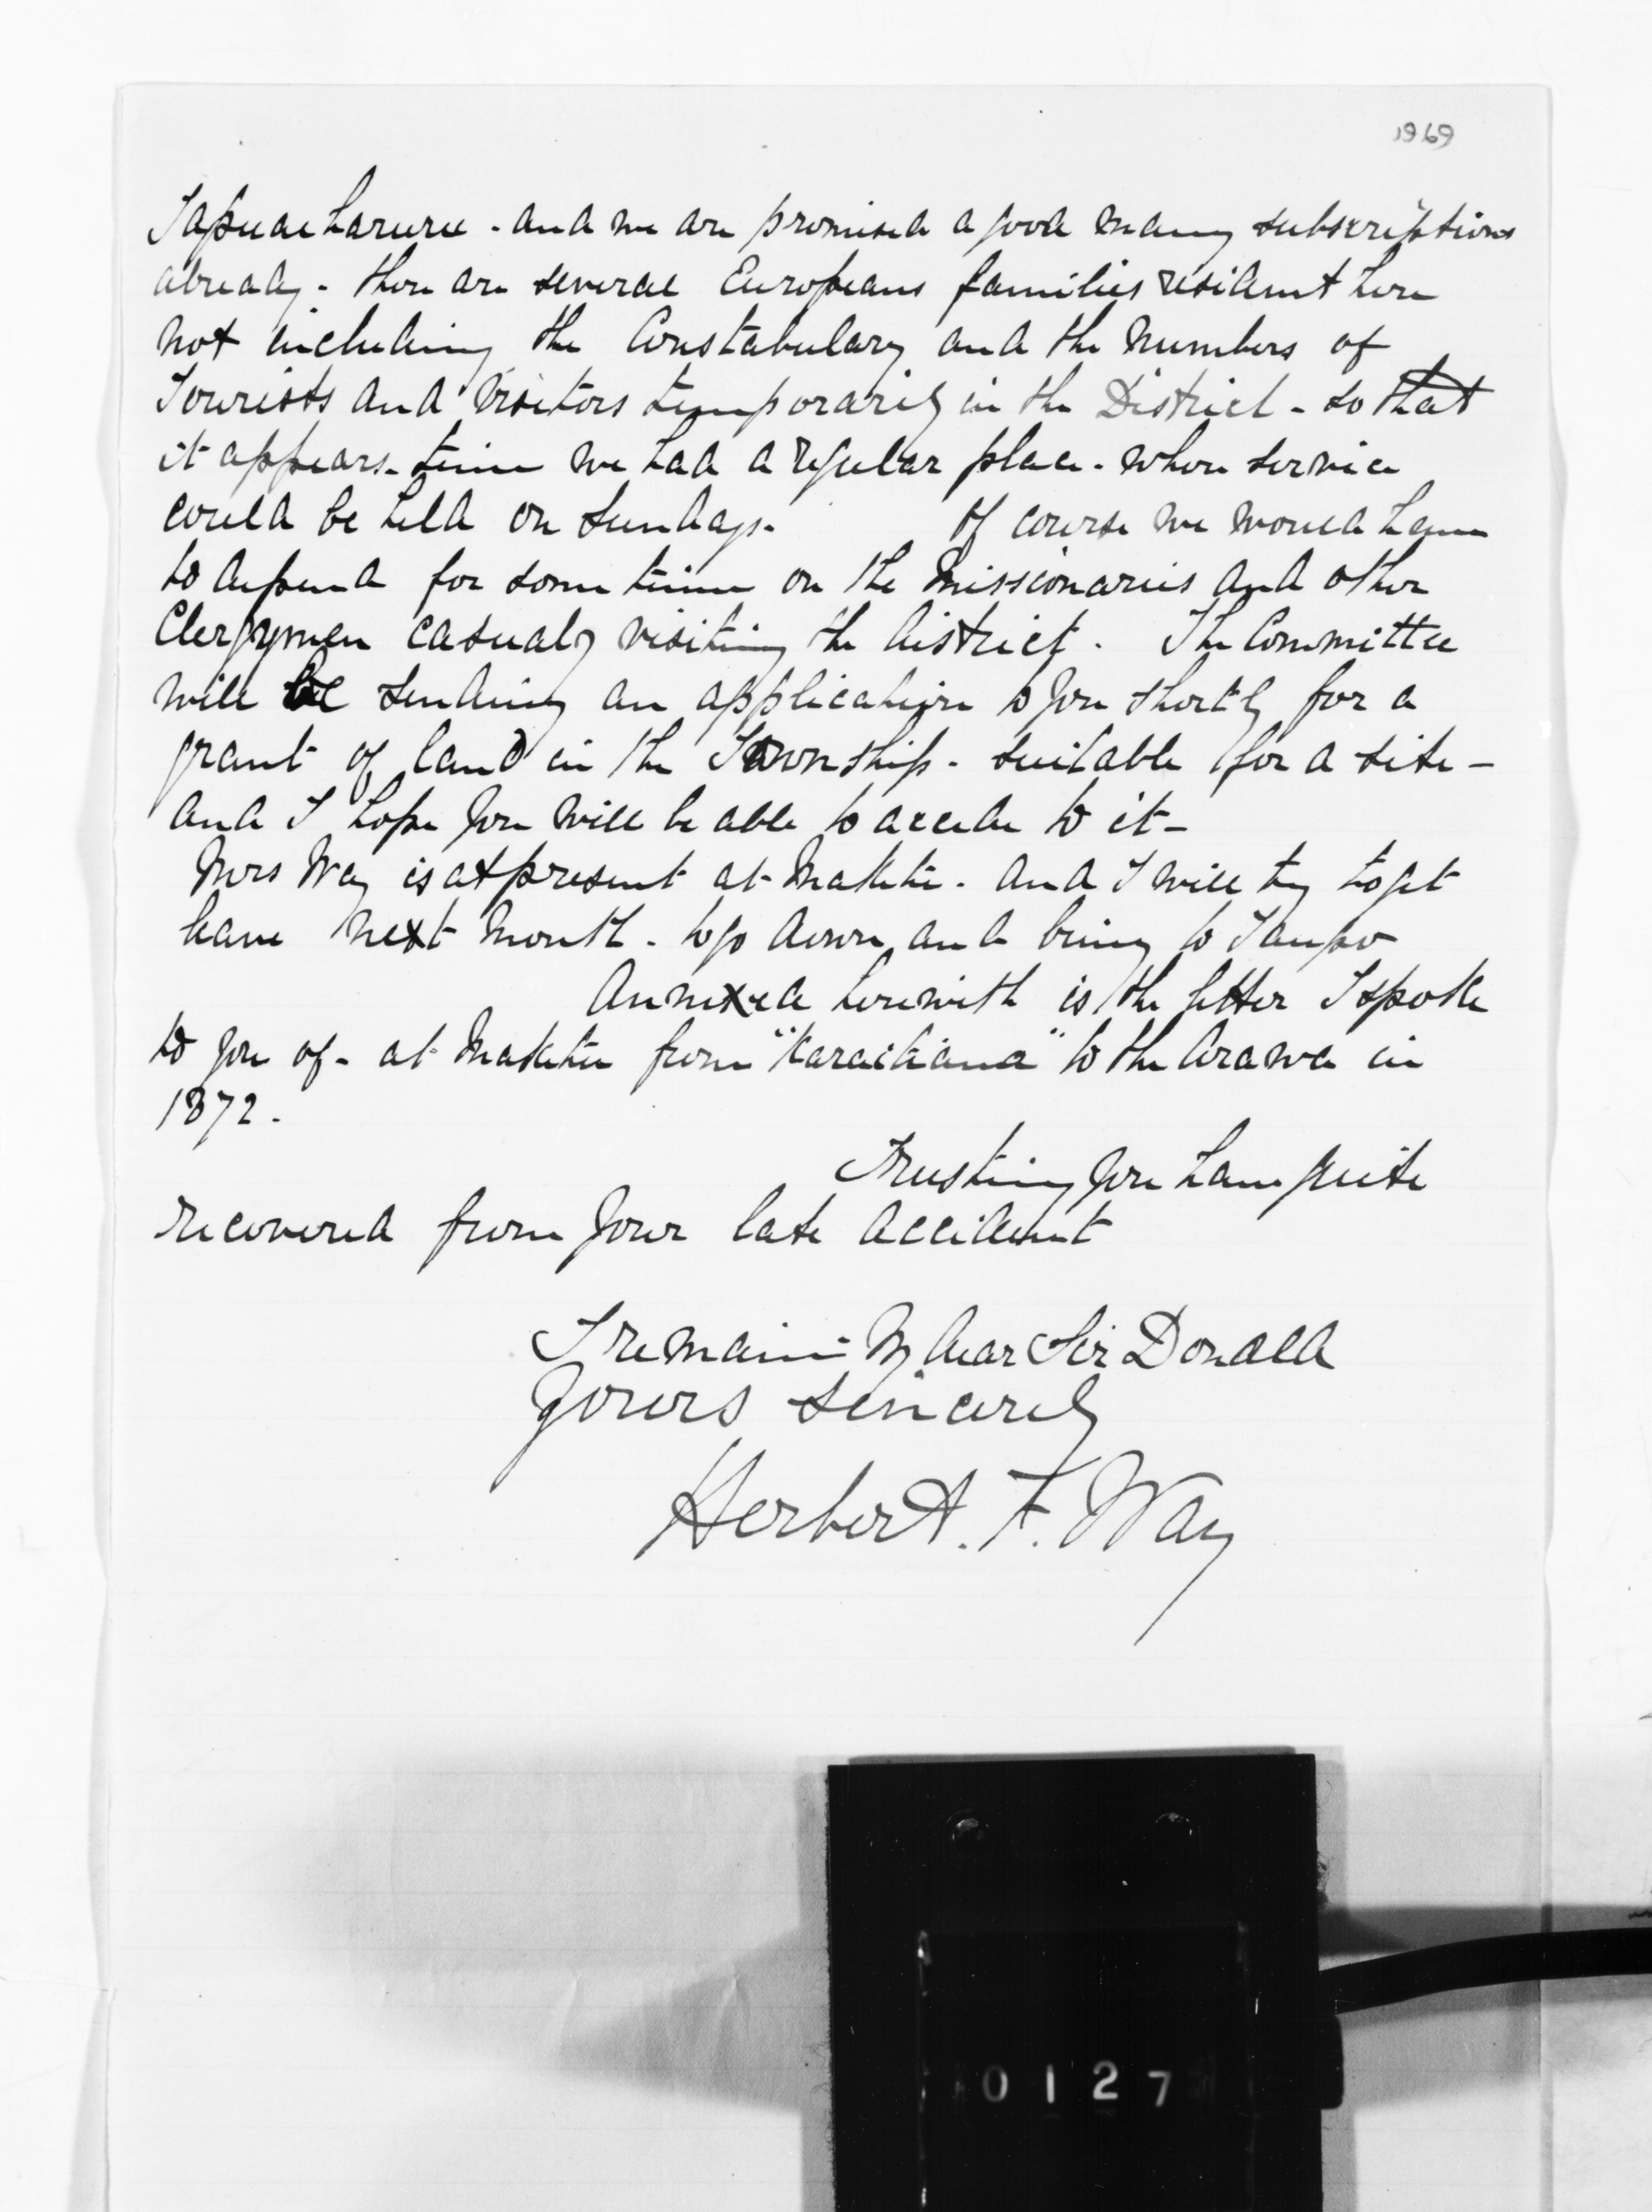 1969
Tapuaeharuru - and we are promised a good many subscriptions
already - there are several Europeans families resident here
not including the Constabulary and the numbers of
Tourists and Visitors temporarily in the District - so that
it appears - time we had a regular place - where service
could be held on Sundays. Of course we would have
to depend for some time on the Missionaries and other
Clergymen casualy visiting the district. The Committee
will be sending an application to you shortly for a
grant of land in the Township - suitable for a site -
and I hope you will be able to accede to it -
Mrs Way is at present at Maketu - and I will try to get
leave next month - to go down and bring to Taupo
Annexed herewith is the letter I spoke
to you of - at Maketu from "Karaitiana" to the Arawa in
1872 -
Trusting you have quite
recovered from your late accident
I remain My dear Sir Donald
Yours sincerely
Herbert. F. Way
0127